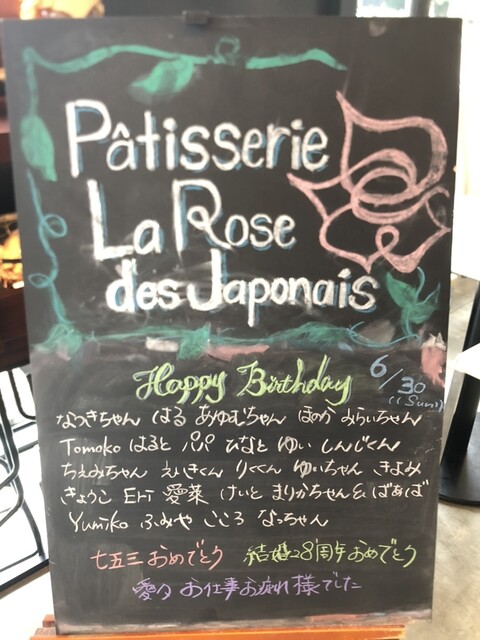 Pâtisserie
La Rose
des Japonais
Happy Birthday 6/30
(Sun)
なつきちゃん はる あゆむちゃん ほのか みらいちゃん
Tomoko はると パパ ひなと ゆい しんじくん
ちえみちゃん えいきくん りくくん ゆいちゃん きよみ
きょうこ Eri 愛菜 けいと まりかちゃん& ばあば
Yumiko ふみや こころ なっちゃん
七五三 おめでとう 結婚28周年おめでとう
愛々 お仕事お疲れ様でした